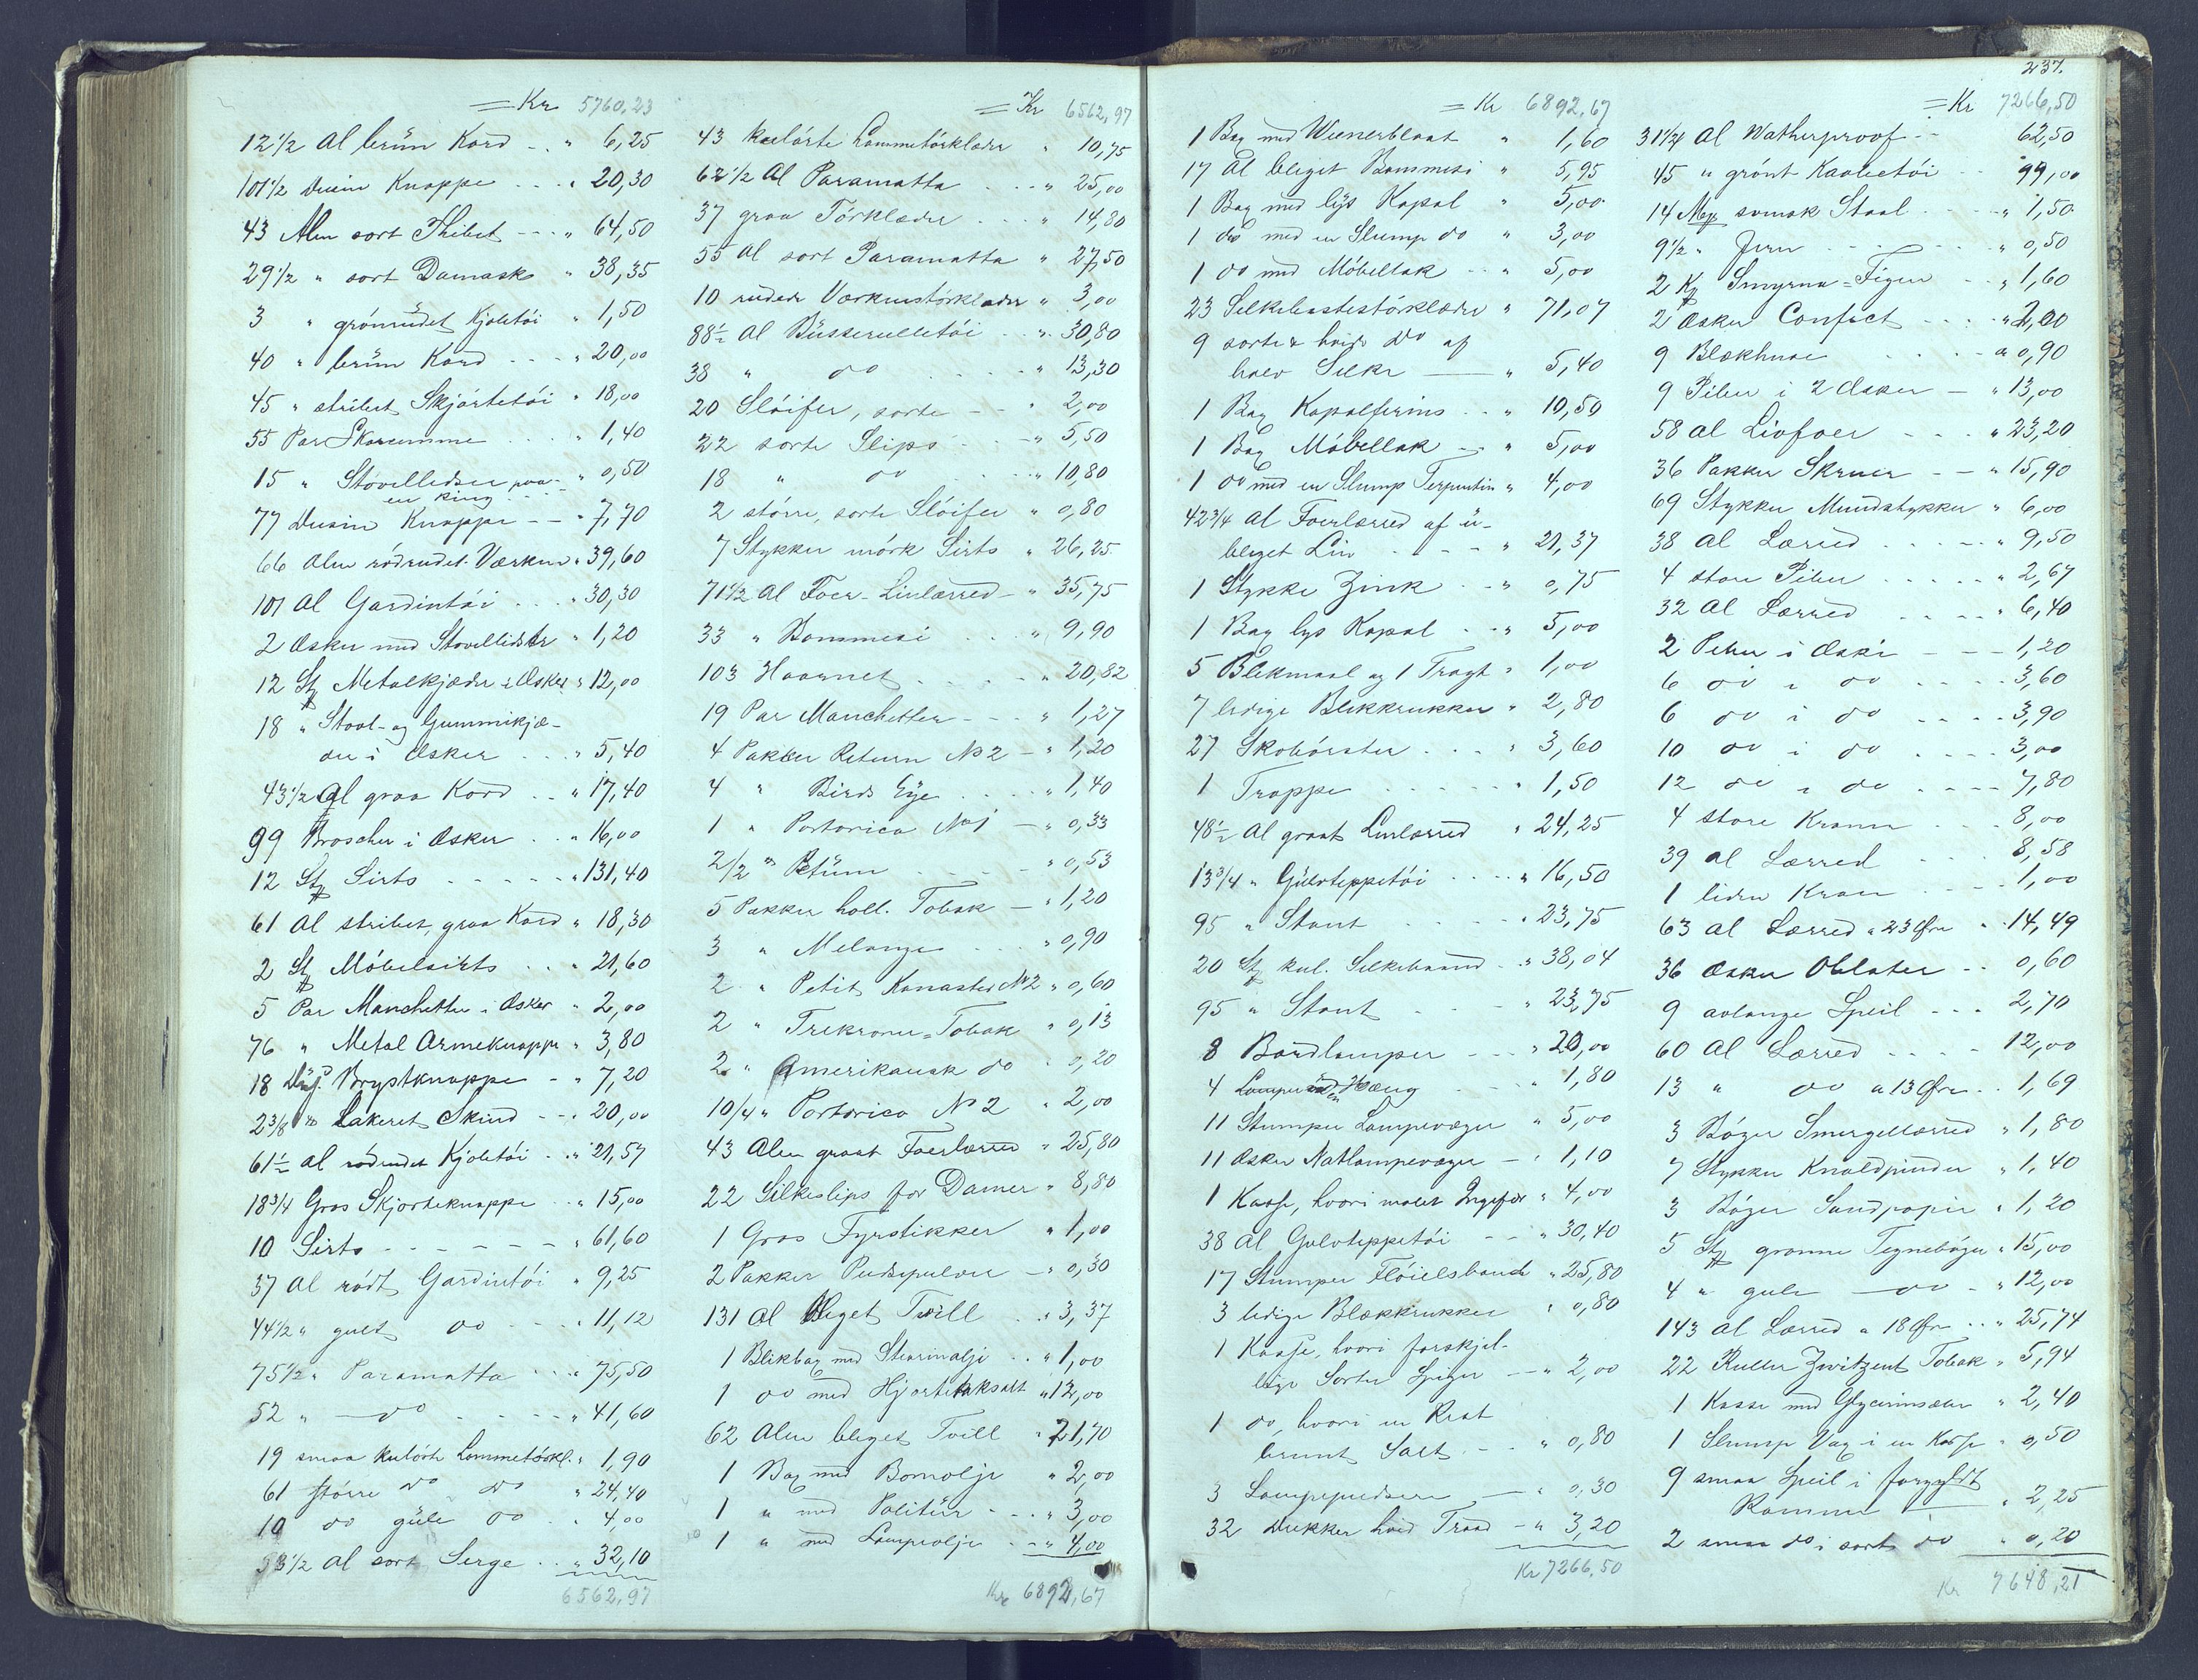 = Kr 5760,23
12 1/2 Al brün Kord - . " 6,25
101 1/2 Dusin Knappe . . . " 20,30
43 Alen sort Thibet - - . " 64,50
29 1/2 " sort Damask " 38,35
3 " grönrüdet Kjoletöi " 1,50
40 " brün Kord . . . " 20,00
45 " stribet Skjörtetöi " 18,00
55 Par Skoremme . . . . " 1,40
15 " Stövelledser paa
en Ring . . . " 0,50
77 Dusin Knappe - - " 7,70
66 Alen rödrudet Værken " 39,60
101 Al Gardintöi . . . " 30,30
2 Æsker med Stövelledser " 1,20
12 St Metalkjæder i Æsker " 12,00
18 " Staal- og Gummikjæ-
der i Æsker . . . " 5,40
43 1/2 Al graa Kord . . " 17,40
99 Broscher i Æsker . . " 16,00
12 St Sirts - - - - - " 131,40
61 Al stribet, graa Kord " 18,30
2 St Möbelsirts . . . " 21,60
5 Par Manchetter i Æsker " 2,00
76 " Metal Armeknappe " 3,80
18 Dus. Brystknappe - " 7,20
2 3/8 " Lakeret Skind - - " 20,00
61 1/2 Al rödrudet Kjoletöi . " 21,57
18 3/4 Gros Skjorteknappe . " 15,00
10 Sirts - - - - - - " 61,60
37 Al rödt Gardintöi " 9,25
44 1/2 " gult do - - - " 11,12
75 1/2 " Paramatta . . . " 75,50
52 " do . - - - " 41,60
19 smaa kulörte Lommetörkl. " 1,90
61 större do do " 24,40
10 do gule do . " 4,00
53 1/2 Al sort Serge . . " 32,10
6562,97
= Kr 6562,97
43 kulörte Lommetörklæder " 10,75
62 1/2 Al Paramatta . . - " 25,00
37 graa Törklæder . . . " 14,80
55 Al sort Paramatta " 27,50
10 rudede Værkenstörklæder " 3,00
88 1/2 Al Büsserulletöi . . . " 30,80
38 " do . . . " 13,30
20 Slöifer, sorte - - " 2,00
22 sorte Slips . . - " 5,50
18 " do . . . " 10,80
2 större, sorte Slöifer " 0,80
7 Stykker mörk Sirts " 26,25
71 1/2 Al Foer-Linlærred - " 35,75
33 " Bommesi . . " 9,90
103 Haarnet . . . . " 20,82
19 Par Manchetter - - - " 1,27
4 Pakker Return No 2 - " 1,20
4 " Birds Eye . . . . " 1,40
1 " Portorico No 1 - " 0,33
2 1/2 " Petüm . . . . " 0,53
5 Pakker holl. Tobak - " 1,20
3 " Melange . . . " 0,90
2 " Petit Kanaster No 2 " 0,60
2 " Trekroner=Tobak " 0,13
2 " Amerikansk do " 0,20
10/4 " Portorico No 2 " 2,00
43 Alen graat Foerlærred " 25,80
22 Silkeslips for Damer " 8,80
1 Gros Fyrstikker " 1,00
2 Pakker Pudsepulver - " 0,30
131 Al bleget Tvill . . " 3,37
1 Blikbag med Stearinolje . . " 1,00
1 do med Hjortetaksalt " 12,00
62 Alen bleget Tvill " 21,70
1 Bag med Bomolje . " 2,00
1 " med Politür - . . " 3,00
1 " med Lampeolje . . " 4,00
Kr 6892,67
= Kr 6892,67
1 Bag med Wienerblaat " 1,60
17 Al bleget Bommesi " 5,95
1 Bag med lÿs Kopal " 5,00
1 do med en Slump do " 3,00
1 do med Möbellak . . " 5,00
23 Silkekastetörklæder " 71,07
9 sorte & hvide do af
halv Silke — " 5,40
1 Bag Kopalfernis . . " 10,50
1 Bag Möbellak - . " 5,00
1 do med en Slump Terpentin " 4,00
42 3/4 Al Foerlærred af u-
bleget Lin . . - - " 21,37
1 Stykke Zink . . - " 0,75
1 Bag lys Kopal . . " 5,00
5 Blikmaal og 1 Tragt " 1,00
7 ledige Blikkrukker " 2,80
27 Skobörster . . . " 3,60
1 Trappe . . . . . " 1,50
48 1/2 Al graat Linlærred " 24,25
13 3/4 " Gülvteppetöi . . . " 16,50
95 " Stout . . . . " 23,75
20 St kul. Silkebaand . " 38,04
95 " Stout . . . " 23,75
8 Bordlamper - - - " 20,00
4 Lamper med Hæng . . " 1,80
11 Stumper Lampevæger " 5,00
11 Æsker Natlampevæger - " 1,10
1 Kasse, hvori malet Ingefær " 4,00
38 Al Gulvteppetöi - - " 30,40
17 Stumper Flöielsbaand " 25,80
3 ledige Blækkrukker " 0,80
1 Kasse, hvori forskjel-
lige Sorter Spiger - " 2,00
1 do, hvori en Rest
brunt Salt . - " 0,80
3 Lampepudsere — " 0,30
32 Dukker hvid Traad - " 3,20
Kr 7266,50
237.
= Kr 7266,50
31 1/4 Al Watherproof - - 62,50
45 " grönt Kaabetöi . . 99,00
14 svensk Staal . . . " 1,50
9 1/2 " Jern - - - - " 0,50
2 Smyrna=Figen . . " 1,60
2 Æsker Confect . . . . " 2,00
9 Blækhuse . . . . a 0,90
9 Piber i 2 Æsker — " 13,00
58 Al Livfoer - - . " 23,20
36 Pakker Skruer - - " 15,90
69 Stykker Mundstykker " 6,00
38 Al Lærred . . . - - " 9,50
4 store Piber . . . . . " 2,67
32 Al Lærred . . . . " 6,40
2 Piber i Æske - - - - 1,20
6 do i do . . . . 3,60
6 do i do - - . . 3,90
10 do i do . . . . 3,00
12 do i do . . . . 7,80
4 store Kraner . . 8,00
39 Al Lærred . . . 8,58
1 liden Kran . . . 1,00
63 Al Lærred a 23 Øre " 14,49
36 Æsker Oblater - . 0,60
9 avlange Speil . . . 2,70
60 Al Lærred . . . . 12,00
13 " do a 13 Øre . . 1,69
3 Böger Smergellærred " 1,80
7 Stykker Knaldpinder " 1,40
3 Böger Sandpapir " 1,20
5 St grønne Tegneböger " 15,00
4 " gule — do - " 12,00
143 Al Lærred a 18 Øre . . " 25,74
22 Ruller Zwitzent Tobak " 5,94
1 Kasse med Glycerinsæbe " 2,40
1 Slump Vox i en Kasse " 0,50
9 smaa Speil i forgyldt
Ramme — " 2,25
2 smaa do i sort do " 0,20
Kr 7648,21